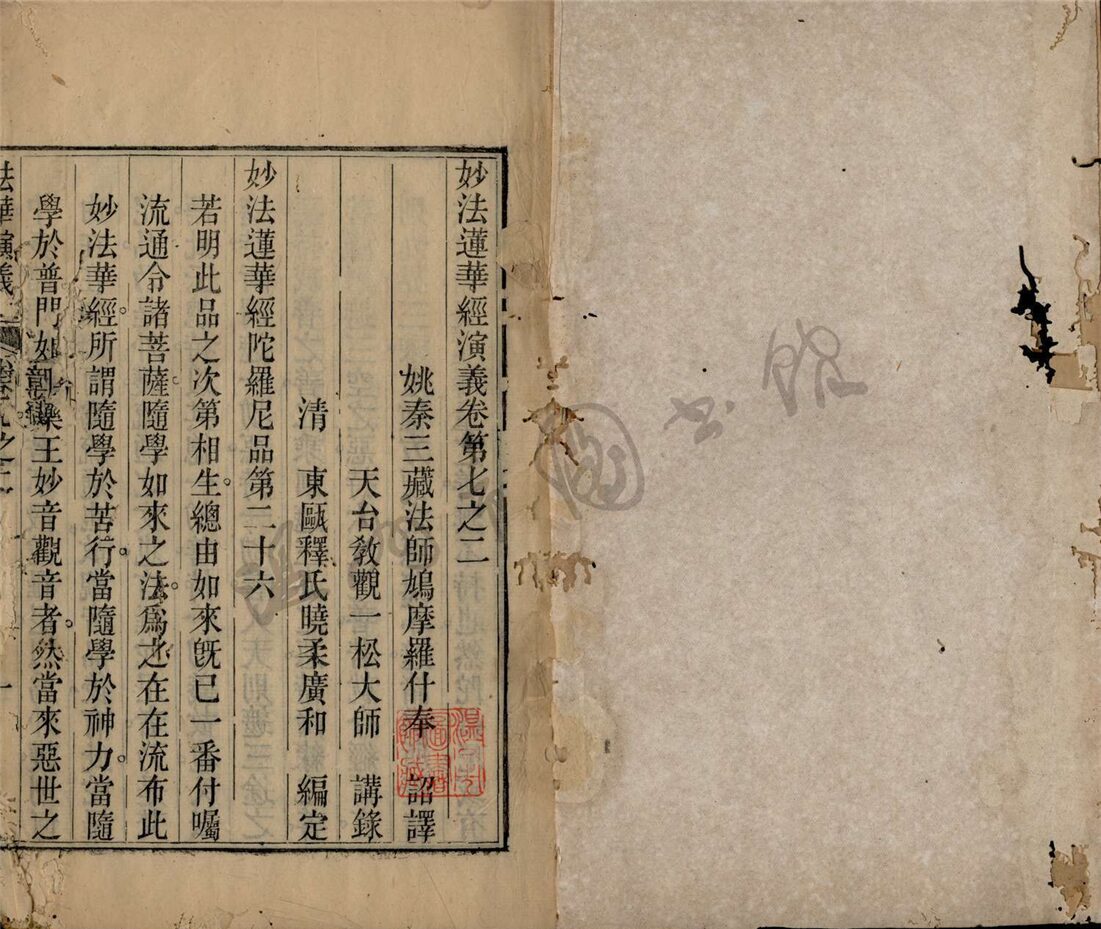 妙法蓮華經演義卷第七之二
姚秦三藏法師鳩摩羅什奉 詔譯
天台教觀一松大師 講錄
清 東甌釋氏曉柔廣和 編定
妙法蓮華經陀羅尼品第二十六
若明此品之次第相生。總由如來旣已一番付囑
流通令諸菩薩隨學如來之法。爲之在在流布此
妙法華經。所謂隨學於苦行。當隨學於神力。當隨
學於普門如藥王妙音觀音者。然當來惡世之
法華演義